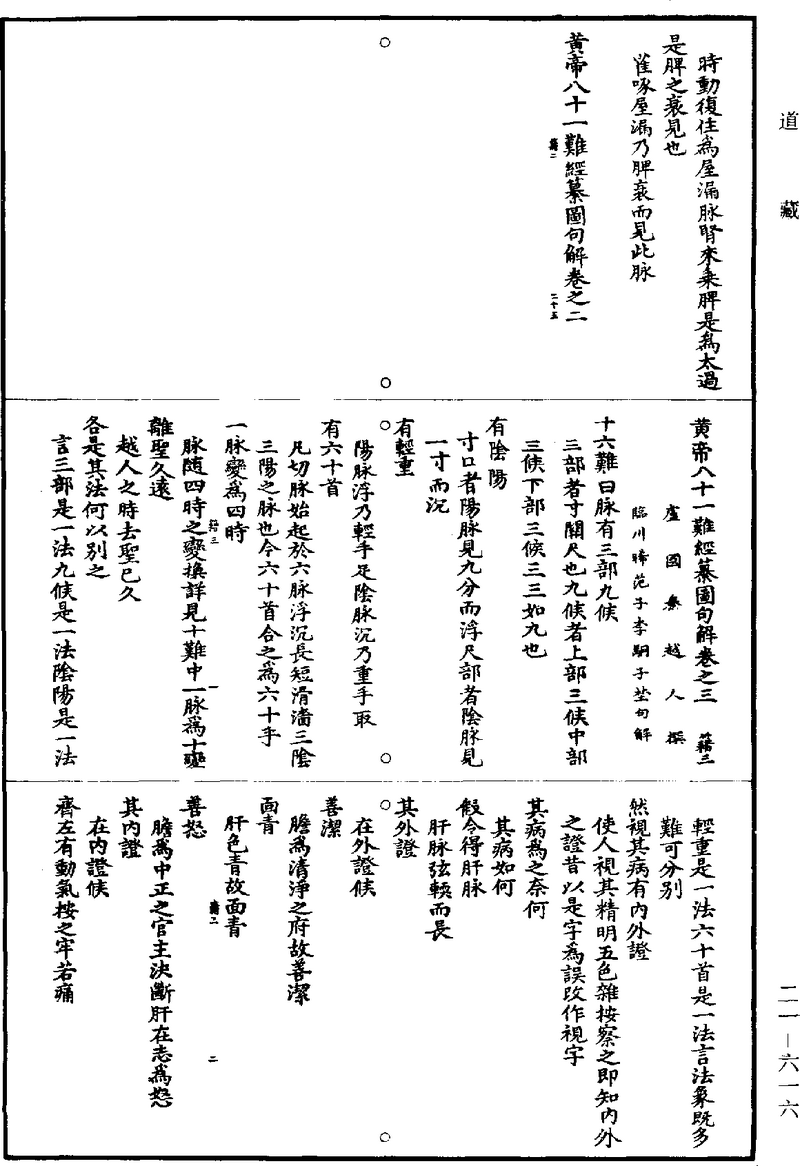 道藏
時動復住為屋漏脉腎來乗脾是為太過
是脾之衰見也
雀啄屋漏乃脾衰而見此脉
黄帝八十一難經纂圖句解卷之二
籍二
二十五
黄帝八十一難經纂圖句解卷之三 籍三
盧國秦越人撰
臨川晞范子李駉子埜句解
十六難曰脉有三部九候
三部者寸關尺也九候者上部三候中部
三候下部三候三三如九也
有陰陽
寸口者陽脉見九分而浮尺部者陰脉見
一寸而沉
有輕重
陽脉浮乃輕手足陰脉沉乃重手取
有六十首
凡切脉始起於六脉浮沉長短滑濇三陰
三陽之脉也今六十首合之為六十乎
一脉變為四時
籍三
脉隨四時之變換詳見十難中一脉為十變
一
離聖久遠
越人之時去聖已久
各是其法何以别之
言三部是一法九候是一法陰陽是一法
輕重是一法六十首是一法言法象既多
難可分别
然視其病有内外證
使人視其精明五色雜按察之即知内外
之證昔以是字為誤改作視字
其病為之奈何
其病如何
假令得肝脉
肝脉弦輭而長
其外證
在外證候
善潔
膽為清淨之府故善潔
面青
肝色青故面青
籍三
二
善怒
膽為中正之官主决斷肝在志為怒
其内證
在内證候
齊左有動氣按之牢若痛
二一—六一六